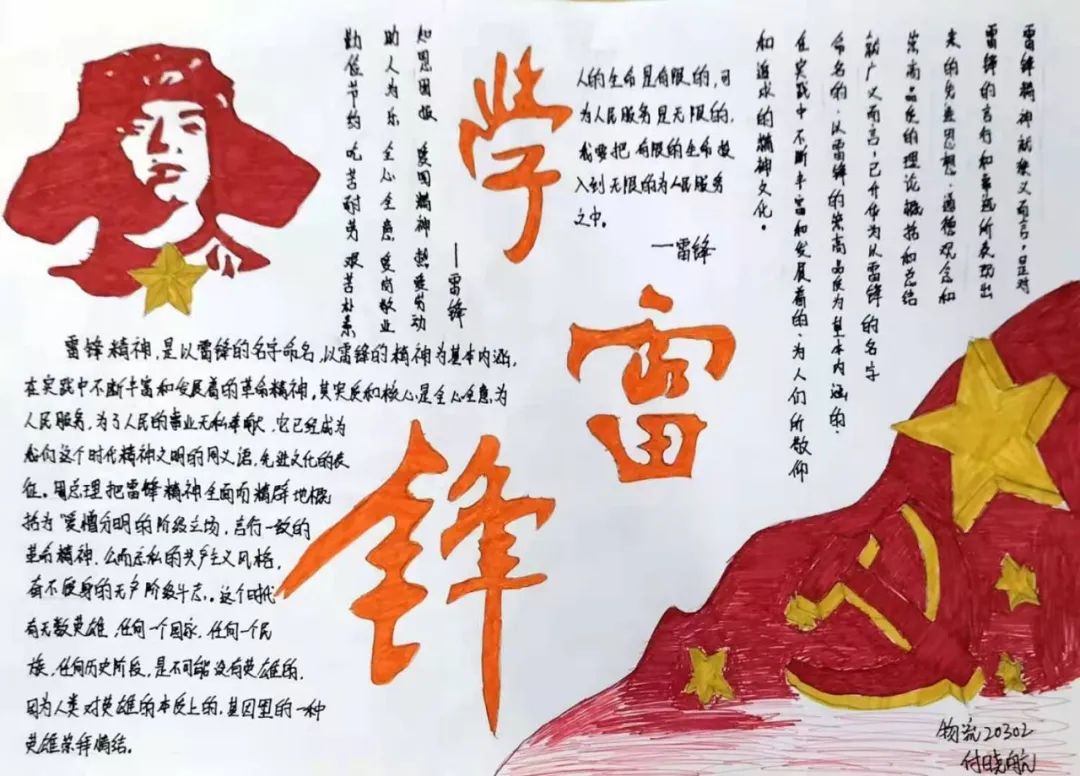 学
雷
锋
知恩图报 爱国精神 热爱劳动
助人为乐 全心全意 爱岗敬业
勤俭节约 吃苦耐劳 艰苦朴素
——雷锋
人的生命是有限的,可
为人民服务是无限的,
我要把有限的生命投
入到无限的为人民服务
之中。
—雷锋
雷锋精神就狭义而言,是对
雷锋的言行和事迹所表现出
来的先进思想、道德观念和
崇高品质的理论概括和总结
就广义而言,已升华为以雷锋的名字
命名的、以雷锋的崇高品质为基本内涵的、
在实践中不断丰富和发展着的、为人们所敬仰
和追求的精神文化。
雷锋精神,是以雷锋的名字命名,以雷锋的精神为基本内涵,
在实践中不断丰富和发展着的革命精神,其实质和核心是全心全意为
人民服务,为了人民的事业无私奉献,它已经成为
我们这个时代精神文明的同义语,先进文化的表
征。周总理把雷锋精神全面而精辟地概
括为"爱憎分明的阶级立场,言行一致的
革命精神、公而忘私的共产主义风格,
奋不顾身的无产阶级斗志。这个时代
有无数英雄,任何一个国家,任何一个民
族,任何历史阶段,是不可能没有英雄的,
因为人类对英雄的本质上的,基因里的一种
英雄崇拜情结。
物流20302
付晓航